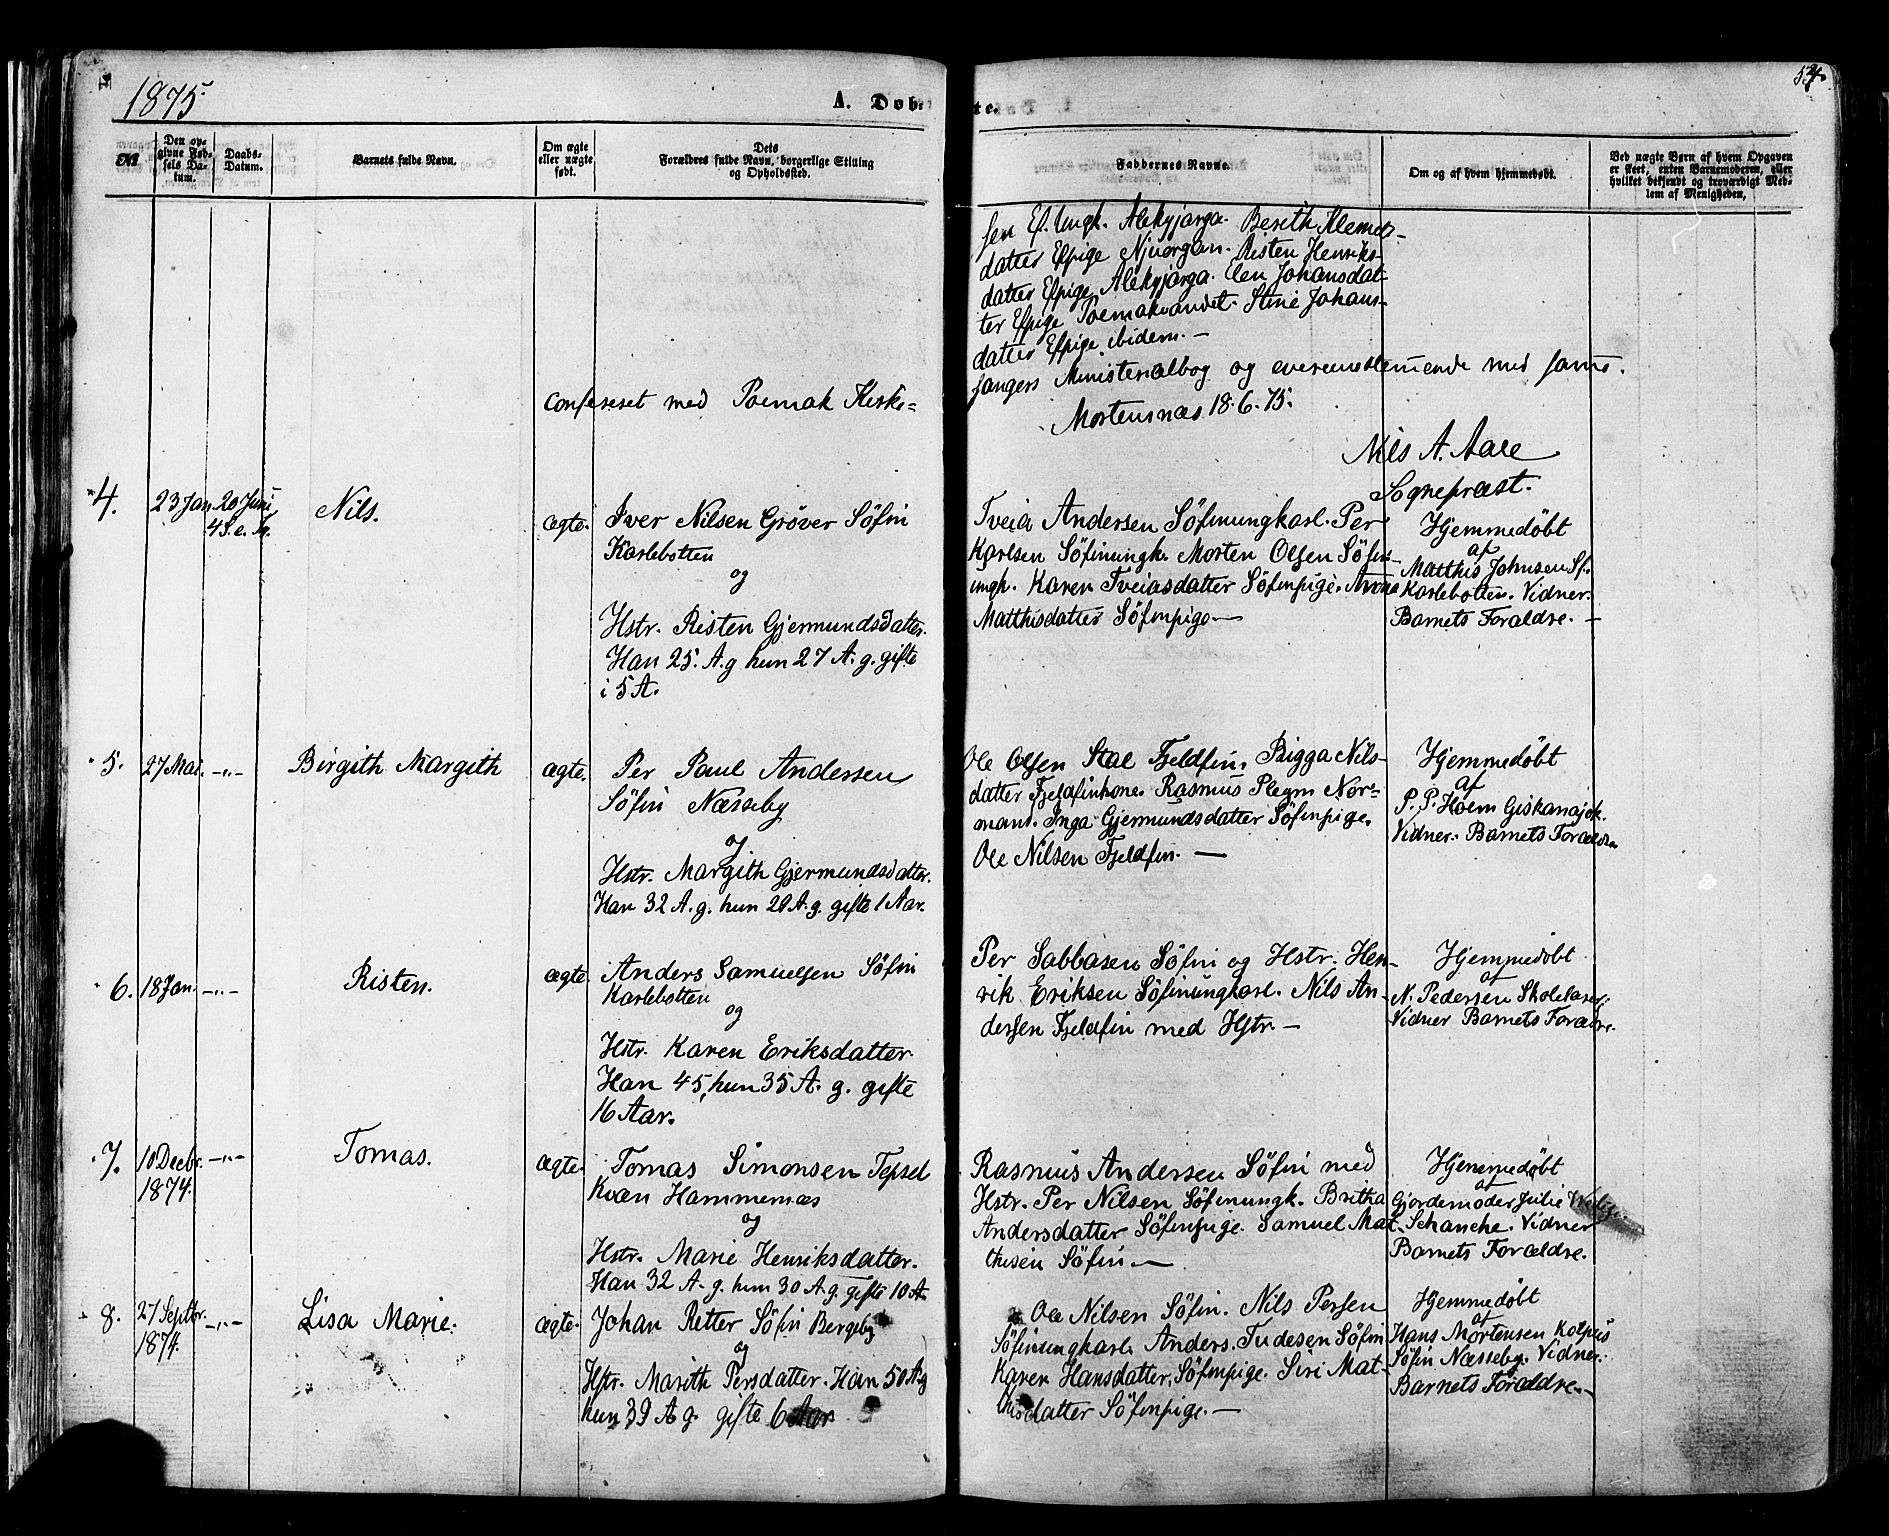 1875
A. Døbte.
54.
No.
Den op-
givne Fød-
sels Da-
tum.
Daabs-
Datum.
Barnets fulde Navn.
Om ægte
eller uægte
født.
Dets
Forældres fulde Navn, borgerlige Stilling
og Opholdssted.
Faddernes Navne.
Om og af hvem hjemmedøbt.
Ved uægte Børn af hvem Opgaven
er skeet, enten Barnemoderen, eller
hvilket bekjendt og troværdigt Med-
lem af Menigheden.
sen Ef. Ungk. Alekjarga. Berith Klemets-
datter Efpige Njuorgan. Risten Henriks-
datter Efpige Alekjarga. Elen Johansdat-
ter Efpige Polmakvandet. Stine Johans-
datter Efpige ibidem. —
confereret med Polmak Kirke-
sangers Ministerialbog og overensstemmende med samme.
Mortensnæs 18.6.75.
Nils A. Aall
Sognepræst.
4.
23 Jan.
20 Juni
4 S. e. Tr.
Nils.
ægte.
Iver Nilsen Grøver Søfin
Karlebotten
og
Hstr. Risten Gjermundsdatter.
Han 25. A. g hun 27 A. g. gifte
i 5 A.
Tveia Andersen Søfinungkarl. Per
Karlsen Søfinungk. Morten Olsen Søfin-
ungk. Karen Tveiasdatter Søfinpige. Anna
Matthisdatter Søfinpige —
Hjemmedøbt
af
Matthis Johnsen Sf.
Karlebotten. Vidner.
Barnets Forældre. —
5.
27 Mai.
—"—
Birgith Margith
ægte.
Per Paul Andersen
Søfin Næsseby
og
Hstr. Margith Gjermundsdatter.
Han 32 A. g. hun 29 A. g. gifte 1 Aar.
Ole Olsen Stal Fjeldfin. Bigga Nils-
datter Fjeldfinkone. Rasmus Plegm Nor-
mand. Inga Gjermundsdatter Søfinpige.
Ole Nilsen Fjeldfin. —
Hjemmedøbt
af
P. P. Hoem Giskanajok.
Vidner. Barnets Forældre
6.
18 Jan.
—"—
Risten.
ægte
Anders Samuelsen Søfin
Karlebotten
og
Hstr. Karen Eriksdatter.
Han 45, hun 35 A. g. gifte
16 Aar.
Per Sabbasen Søfin og Hstr. Hen-
rik Eriksen Søfinungkarl. Nils An-
dersen Fjeldfin med Hstr. —
Hjemmedøbt
af
N. Pedersen Skolelærer.
Vidner Barnets Forældre.
7.
10 Decbr.
1874.
—"—
Tomas.
ægte.
Tomas Simonsen Tepsel
Kvæn Hammernæs
og
Hstr. Marie Henriksdatter.
Han 32 A. g. hun 30 A. g. gifte 10 A.
Rasmus Andersen Søfin med
Hstr. Per Nilsen Søfinungk. Britha
Andersdatter Søfinpige. Samuel Mat-
thisen Søfin. —
Hjemmedøbt
af
Gjordemoder Julie
Schanche. Vidner
Barnets Forældre.
8.
27 Septbr.
1874.
—"—
Lisa Marie.
ægte.
Johan Retter Søfin Bergeby
og
Hstr. Marith Persdatter. Han 50 A. g
hun 39 A. g. gifte 6 Aar
Ole Nilsen Søfin. Nils Persen
Søfinungkarl. Anders Tudesen Søfin
Karen Hansdatter, Søfinpige. Siri Mat-
thisdatter Søfinpige. —
Hjemmedøbt
af
Hans Mortensen Kolpus
Søfin Næsseby. Vidner.
Barnets Forældre. —